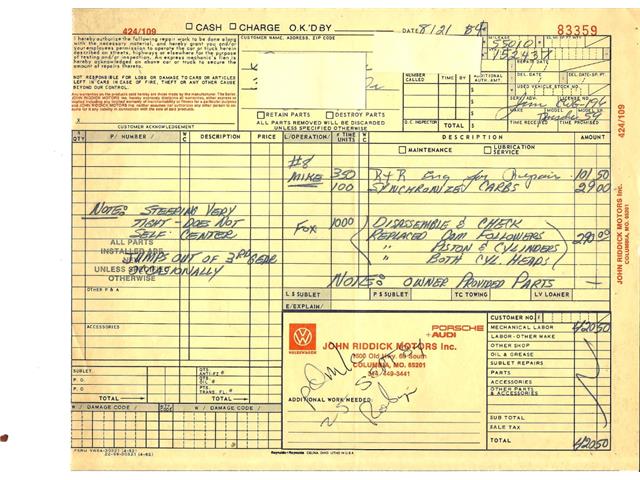 ☐ CASH ☐ CHARGE O.K.'D BY DATE 8/21 84
424/109
83359
I hereby authorize the following repair work to be done along
with the necessary material, and hereby grant you and/or
your employees permission to operate the car or truck herein
described on streets, highways or elsewhere for the purpose
of testing and/or inspection. An express mechanic's lien is
hereby acknowledged on above car or truck to secure the
amount of repairs thereto.
CUSTOMER NAME, ADDRESS, ZIP CODE
MILEAGE
NOT RESPONSIBLE FOR LOSS OR DAMAGE TO CARS OR ARTICLES
LEFT IN CARS IN CASE OF FIRE, THEFT OR ANY OTHER CAUSE
BEYOND OUR CONTROL.
NUMBER CALLED TIME BY ADDITIONAL AUTH. AMT.
DEL. DATE DEL. DATE-SP. PT.
USED VEHICLE STOCK NO.
LICENSE NO.
X
☐ RETAIN PARTS ☐ DESTROY PARTS
ALL PARTS REMOVED WILL BE DISCARDED
UNLESS SPECIFIED OTHERWISE
Q.C. INSPECTOR TIME RECEIVED TIME PROMISED
Porsche 59
CUSTOMER ACKNOWLEDGEMENT
QTY P/ NUMBER / DESCRIPTION PRICE L/OPERATION/ TIME UNITS DESCRIPTION AMOUNT
☐ MAINTENANCE ☐ LUBRICATION SERVICE
#8
MIKE 350 R+R Eng for Repair 101 50
100 SYNCHRONIZED CARBS 29 00
NOTE: STEERING VERY
TIGHT - DOES NOT
SELF CENTER
FOX 1000 DISASSEMBLE & CHECK
REPLACED CAM FOLLOWERS 290 00
" PISTON & CYLINDERS
" BOTH CYL HEADS
ALL PARTS
INSTALLED ARE
NEW
UNLESS SPECIFIED
OTHERWISE
JUMPS OUT OF 3RD GEAR
OCCASIONALLY
NOTE: OWNER PROVIDED PARTS —
OTHER P & A
L S SUBLET P S SUBLET TC TOWING LV LOANER
E/EXPLAIN/
ACCESSORIES
CUSTOMER NO.
VOLKSWAGEN
PORSCHE
+AUDI
JOHN RIDDICK MOTORS Inc.
1500 Old Hwy. 63 South
COLUMBIA, MO. 65201
314/449-3441
ADDITIONAL WORK NEEDED:
MECHANICAL LABOR 420 50
LABOR - OTHER MAKE
OTHER SHOP
OIL & GREASE
SUBLET REPAIRS
PARTS
ACCESSORIES
OTHER PARTS & ACCESSORIES
SUB TOTAL
SALE TAX
TOTAL 420 50
SUBLET
P. O.
P. O.
QTS. ANTI-FT.
QTS. OIL
PTS. TRANS. FL.
TOTAL TOTAL
W / DAMAGE CODE / W / DAMAGE CODE /
Reynolds+Reynolds CELINA, OHIO LITHO IN U.S.A.
424/109
JOHN RIDDICK MOTORS Inc.
COLUMBIA, MO. 65201